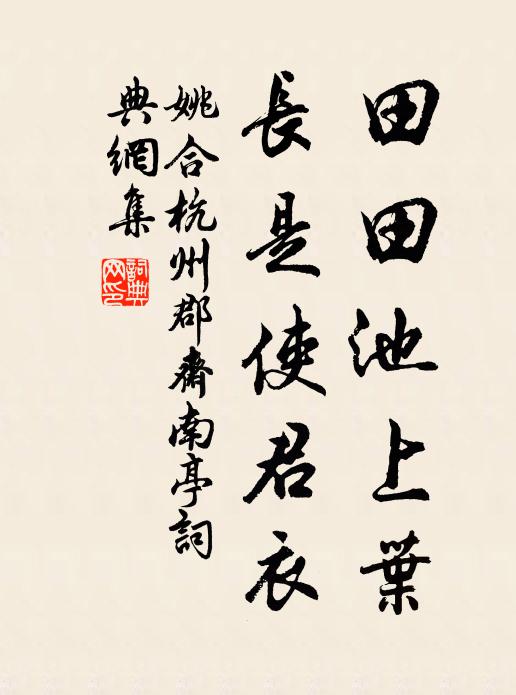 田田池上葉
長是使君衣
姚合杭州郡齋南亭詞
典網集
詞典
网印